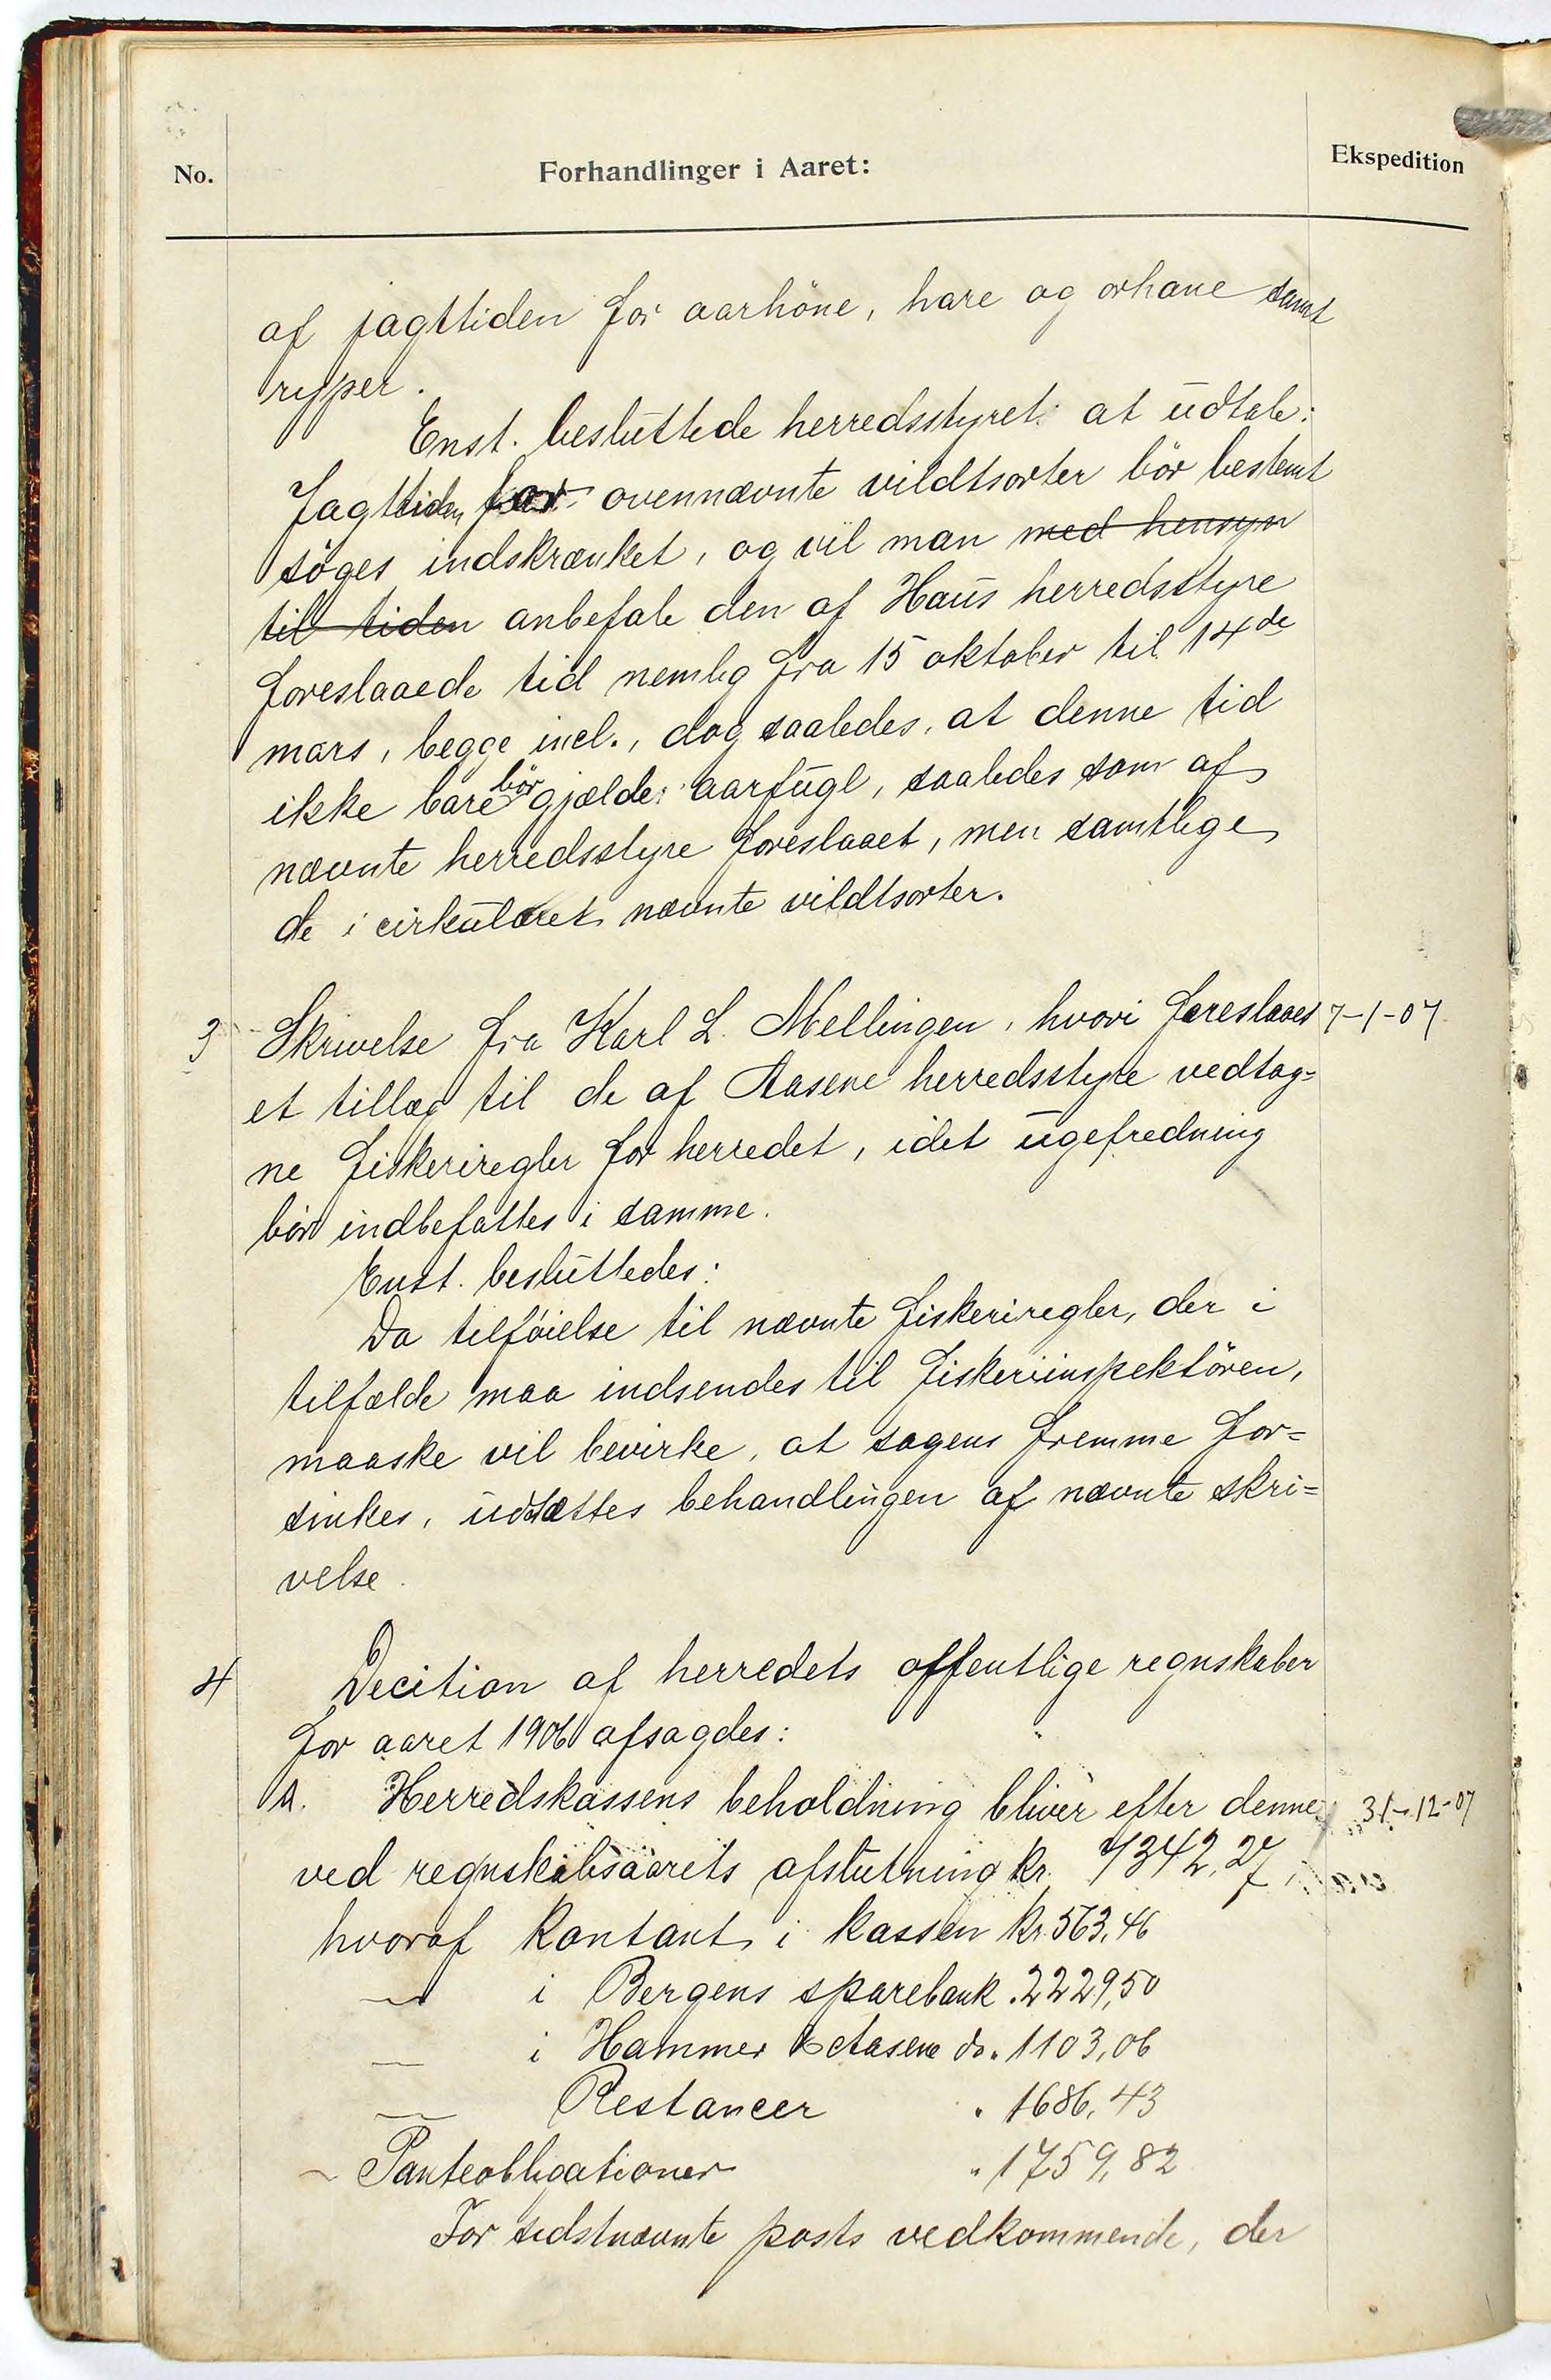 No. Forhandlinger i Aaret: Ekspedition
af jagttiden for aarhöne, hare og orhane samt
ryper.
Enst. besluttede herredsstyret at udtale:
Jagttiden for ovennævnte vildtsorter bör bestemt
söges indskrænket, og vil man med hensyn
til tiden anbefale den af Haus herredsstyre
foreslaaede tid nemlig fra 15 oktober til 14de
mars, begge incl., dog saaledes, at denne tid
ikke bare bör gjælde aarfugl, saaledes som af
nævnte herredsstyre foreslaaet, men samtlige
de i cirkulæret nævnte vildtsorter.
3 Skrivelse fra Karl L. Mellingen, hvori foreslaaes 7-1-07
et tillæg til de af Aasene herredsstyre vedtag=
ne fiskeriregler for herredet, idet ugefredning
bör indbefattes i samme.
Enst. besluttedes:
Da tilföielse til nævnte fiskeriregler, der i
tilfælde maa indsendes til fiskeriinspektören,
maaske vil bevirke, at sagens fremme for=
sinkes, udsættes behandlingen af nævnte skri=
velse.
4 Decition af herredets offentlige regnskaber
for aaret 1906 afsagdes:
a. Herredskassens beholdning bliver efter denne 31-12-07
ved regnskabsaarets afslutning kr. 7342,27,
hvoraf kontant i kassen kr. 563,46
— i Bergens sparebank . 2229,50
— i Hammer & Aasene do. 1103,06
— Restancer " 1686,43
— Panteobligationer " 1759,82
For sidstnævnte posts vedkommende, der